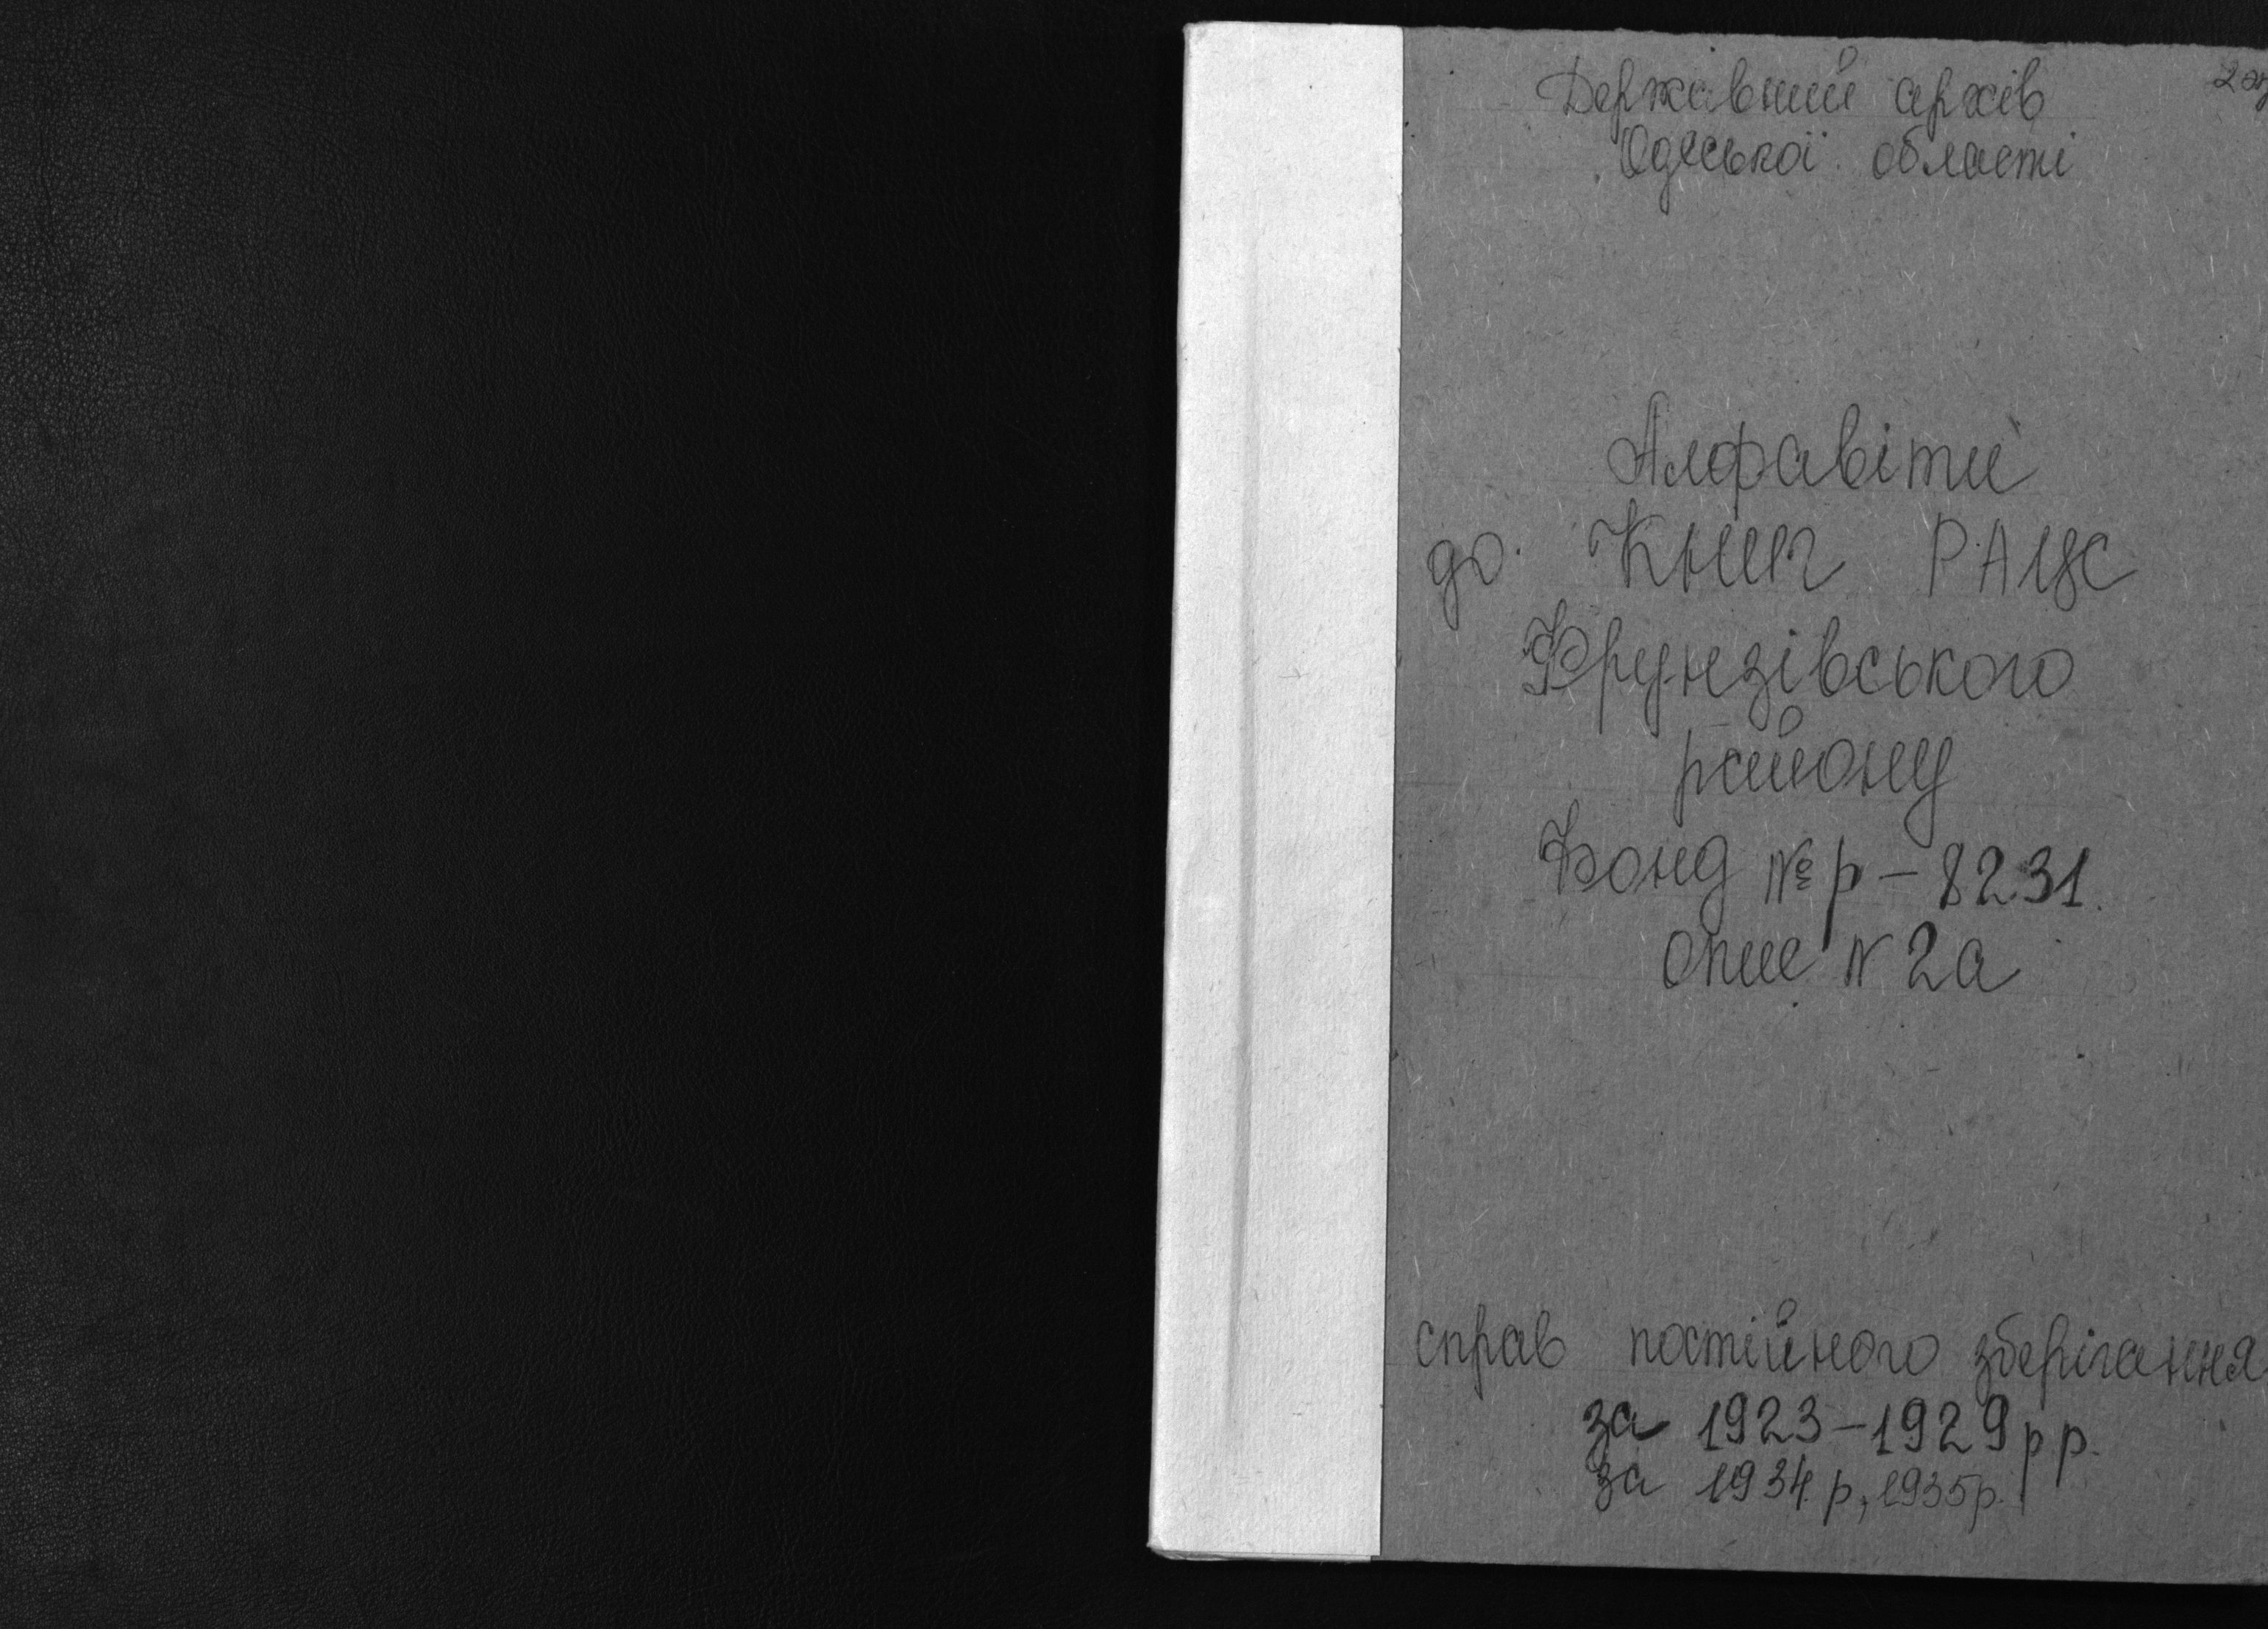 Державний архів
Одеської області
Алфавіти
до Книг РАЦС
Фрунзівського
району
Фонд № р – 8231.
Опис N 2а
справ постійного зберігання
за 1923–1929 р р.
за 1934 р, 1935 р.